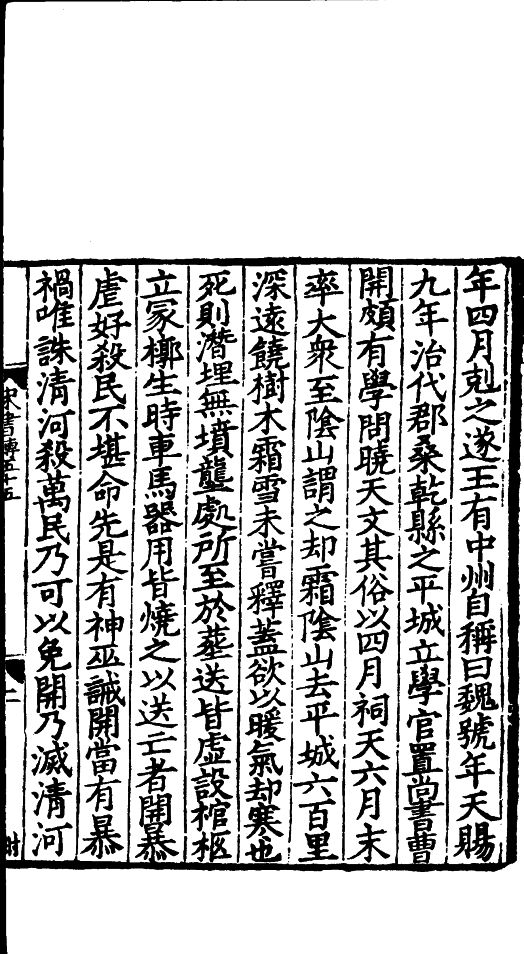 年四月剋之遂王有中州自稱曰魏號年天賜
九年治代郡桑乾縣之平城立學官置尚書曹
開頗有學問曉天文其俗以四月祠天六月末
率大衆至陰山謂之却霜陰山去平城六百里
深遠饒樹木霜雪未嘗釋蓋欲以暖氣却寒也
死則潛埋無墳壟處所至於葬送皆虛設棺柩
立冢槨生時車馬器用皆燒之以送亡者開暴
虐好殺民不堪命先是有神巫誡開當有暴
禍唯誅清河殺萬民乃可以免開乃滅清河
宋書傳五十五
二